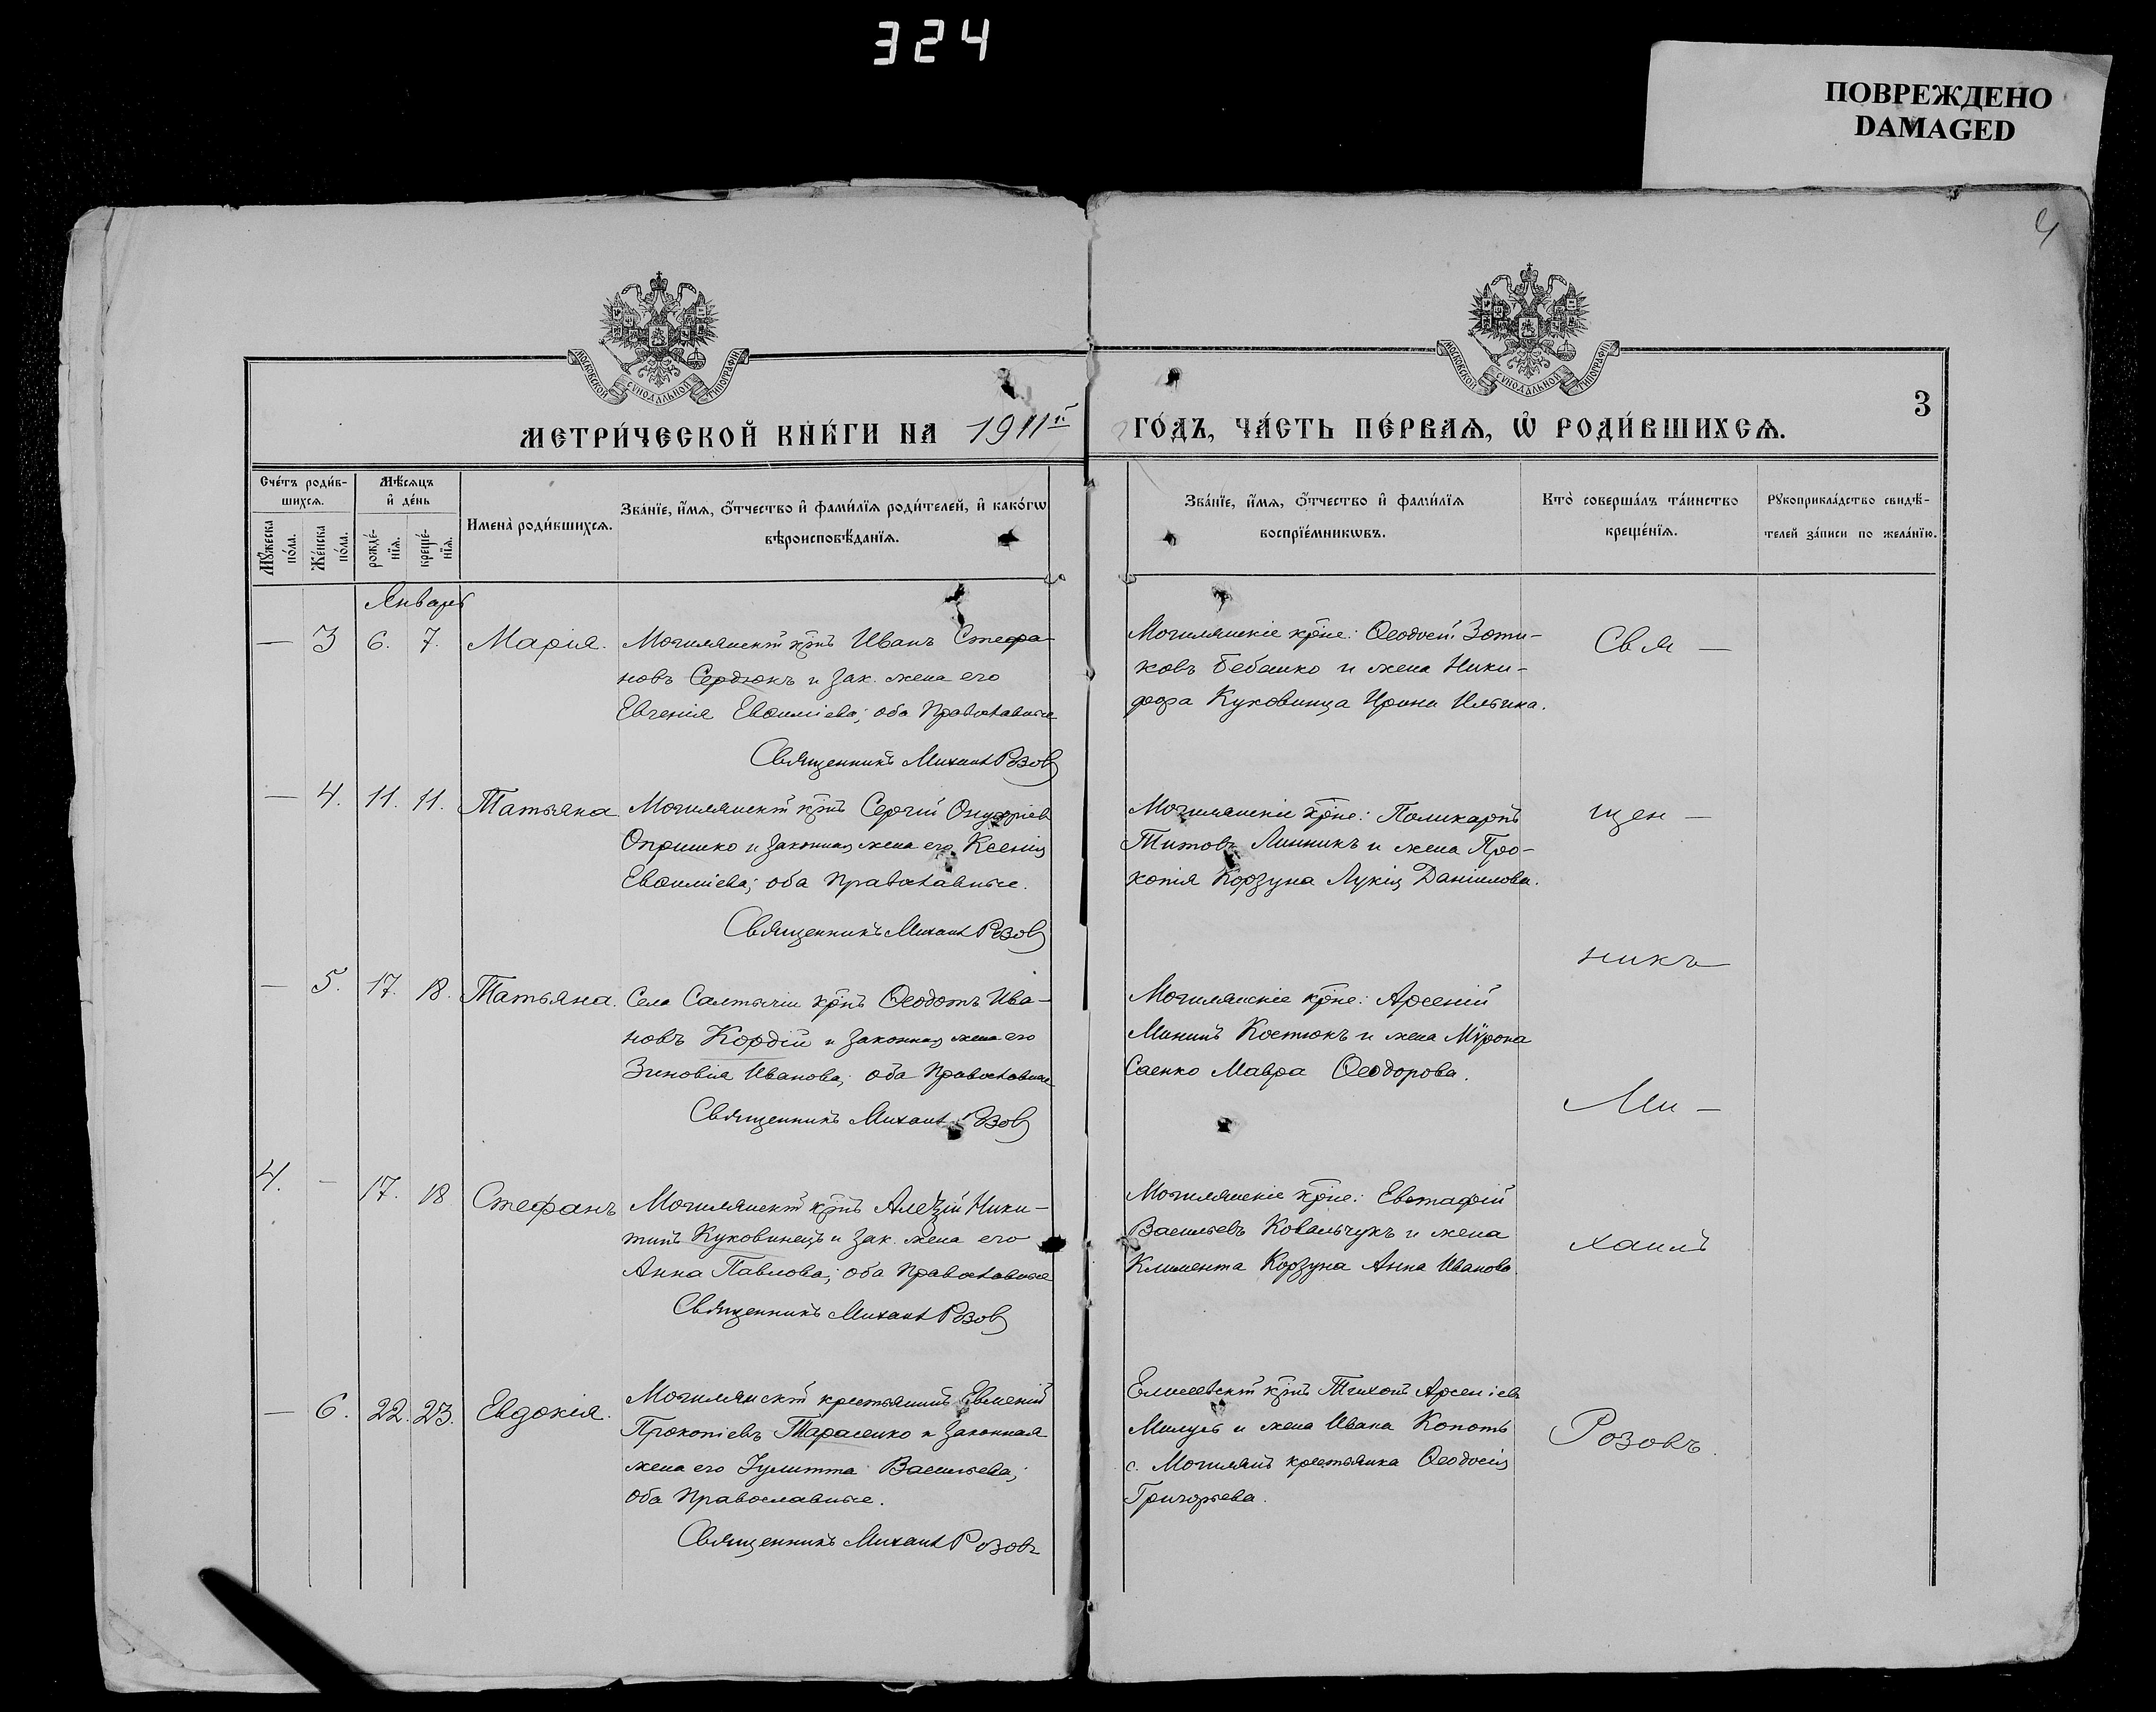 324
ПОВРЕЖДЕНО
DAMAGED
4
МОСКОВСКОЙ СѴНОДАЛЬНОЙ ТИПОГРАФІИ
МОСКОВСКОЙ СѴНОДАЛЬНОЙ ТИПОГРАФІИ
3
МЕТРИ́ЧЕСКОЙ КНИ́ГИ НА 1911й
ГО́ДЪ, ЧА́СТЬ ПЕ́РВАѦ, Ѡ҆ РОДИ́ВШИХСѦ.
Сче́тъ роди́в-
шихсѧ.
Мꙋ́жеска по́ла.
Же́нска по́ла.
Мѣ́сѧцъ
и҆ де́нь
рожде́-нїѧ.
креще́-нїѧ.
Имена̀ роди́вшихсѧ.
Зва́нїе, и҆́мѧ, о҆́тчество и҆ фами́лїѧ роди́телей, и҆ како́гѡ
вѣроисповѣ́данїѧ.
Зва́нїе, и҆́мѧ, о҆́тчество и҆ фами́лїѧ
воспрїе́мникѡвъ.
Кто̀ соверша́лъ та́инство
креще́нїѧ.
Рꙋкоприкла́дство свидѣ́-
телей за́писи по жела́нїю.
Январь
— 3 6. 7. Марія. Могилянскій кр҃нъ Иванъ Стефа-
новъ Сердюкъ и зак. жена его
Евгенія Евѳиміева; оба Православные
Священникъ Михаилъ Розовъ
Могилянскіе кр҃не: Ѳеодосій Зоти-
ковъ Бебешко и жена Ники-
фора Куковинца Ирина Ильина.
Свя —
— 4. 11. 11. Татьяна Могилянскій кр҃нъ Сергій Онуфріевъ
Опришко и законная жена его Ксенія
Евѳиміева; оба Православные.
Священникъ Михаилъ Розовъ
Могилянскіе кр҃не: Поликарпъ
Титовъ Линникъ и жена Про-
копія Корзуна Лукія Даніилова.
щен —
никъ
— 5. 17. 18. Татьяна. Села Салтычіи кр҃нъ Ѳеодотъ Ива-
новъ Кордій и законная жена его
Зиновія Иванова; оба Православные
Священникъ Михаилъ Розовъ
Могилянскіе кр҃не: Арсеній
Мининъ Костюкъ и жена Мѵрона
Саенко Мавра Ѳеодорова.
Ми —
4. — 17. 18 Стефанъ Могилянскій кр҃нъ Алеѯій Ники-
тинъ Куковинецъ и зак. жена его
Анна Павлова; оба Православные
Священникъ Михаилъ Розовъ
Могилянскіе кр҃не: Евстафій
Васильевъ Ковальчукъ и жена
Климента Корзуна Анна Иванова
хаилъ
— 6. 22. 23. Евдокія. Могилянскій крестьянинъ Евменій
Прокопіевъ Тарасенко и законная
жена его Іулитта Васильева;
оба Православные.
Священникъ Михаилъ Розовъ
Елисеевскій кр҃нъ Тихонъ Арсеніевъ
и жена Ивана Копоть
с. Могилянъ крестьянка Ѳеодосія
Григорьева.
Розовъ.